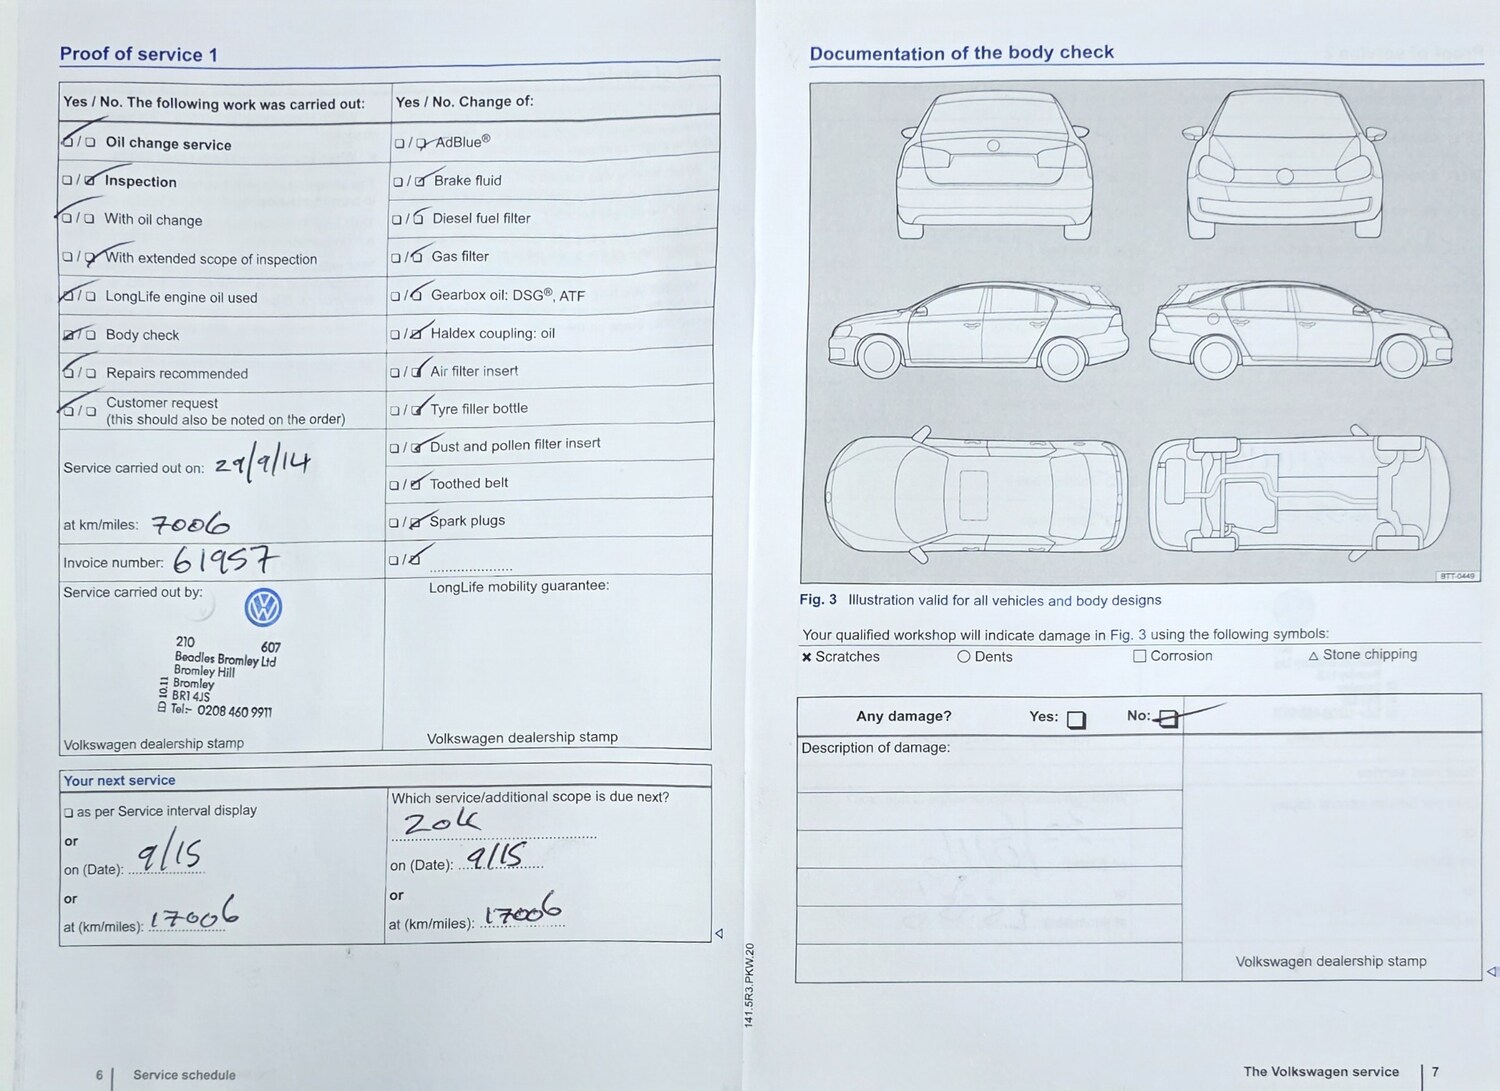 Proof of service 1
Yes / No. The following work was carried out:
Oil change service
Inspection
With oil change
With extended scope of inspection
LongLife engine oil used
Body check
Repairs recommended
Customer request
(this should also be noted on the order)
Service carried out on: 29/9/14
at km/miles: 7006
Invoice number: 61957
Service carried out by:
210 607
Beadles Bromley Ltd
Bromley Hill
Bromley
BR1 4JS
Tel:- 0208 460 9911
Volkswagen dealership stamp
Yes / No. Change of:
AdBlue®
Brake fluid
Diesel fuel filter
Gas filter
Gearbox oil: DSG®, ATF
Haldex coupling: oil
Air filter insert
Tyre filler bottle
Dust and pollen filter insert
Toothed belt
Spark plugs
LongLife mobility guarantee:
Volkswagen dealership stamp
Your next service
as per Service interval display
or
on (Date): 9/15
or
at (km/miles): 17006
Which service/additional scope is due next?
20K
on (Date): 9/15
or
at (km/miles): 17006
141.5R3.PKW.20
6 Service schedule
Documentation of the body check
BTT-0449
Fig. 3 Illustration valid for all vehicles and body designs
Your qualified workshop will indicate damage in Fig. 3 using the following symbols:
Scratches Dents Corrosion Stone chipping
Any damage? Yes: No:
Description of damage:
Volkswagen dealership stamp
The Volkswagen service 7